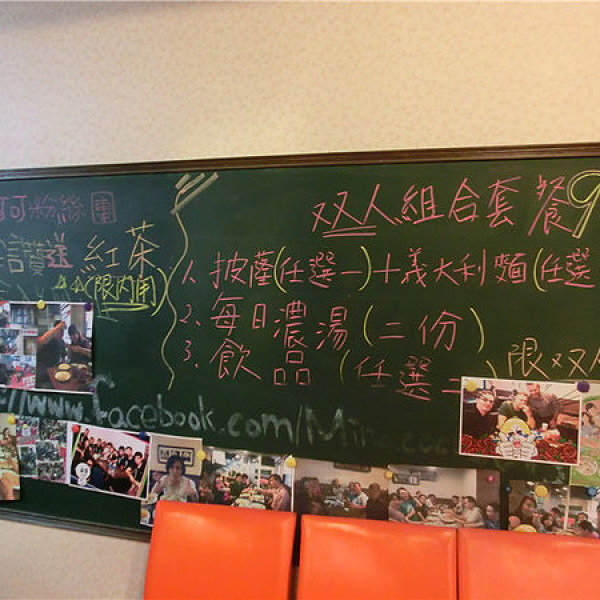 粉絲團
讚送 紅茶
(限內用)
双人組合套餐9
1. 披薩(任選一)十義大利麵(任選
2. 每日濃湯(二份)
3. 飲品(任選二)限双
//www.facebook.com/Min